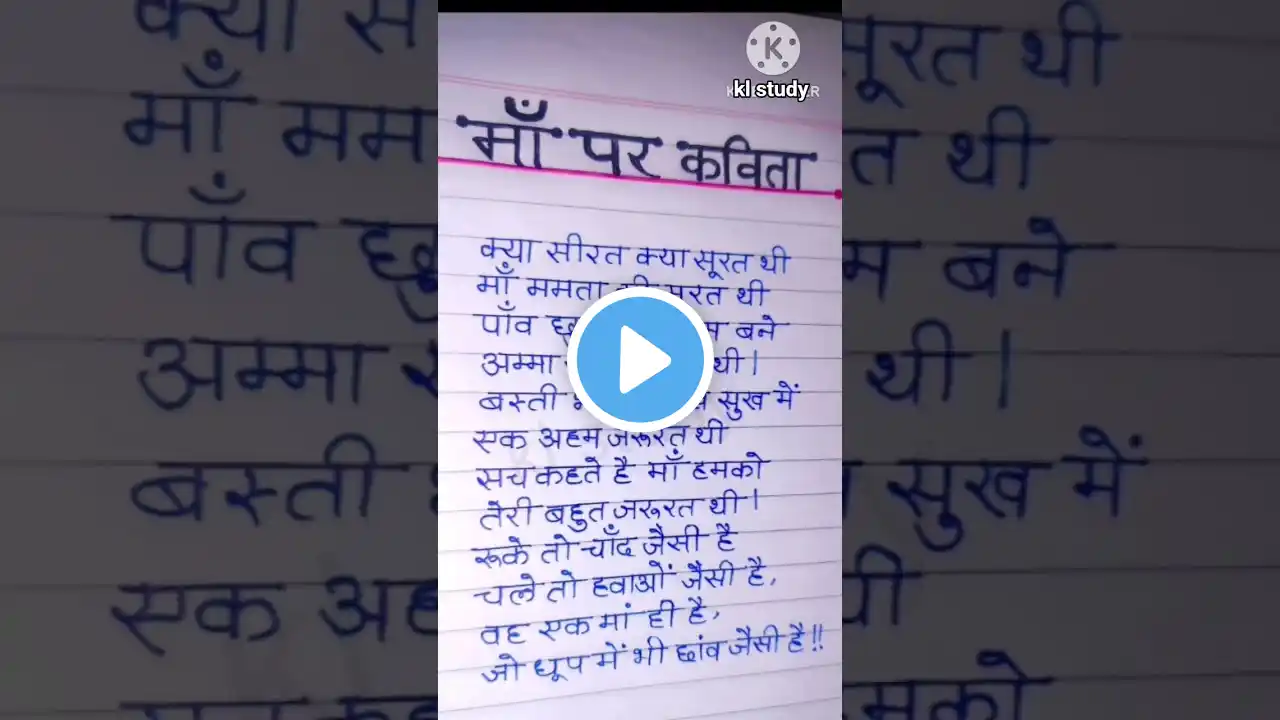 kl study
माँ पर कविता
क्या सीरत क्या सूरत थी
माँ ममता थी
पाँव बने
अम्मा थी।
बस्ती सुख में
एक अहम जरूरत थी
सच कहते है माँ हमको
तेरी बहुत जरुरत थी।
रूके तो चाँद जैसी है
चले तो हवाओं जैसी है,
वह एक मां ही है,
जो धूप में भी छांव जैसी है!!